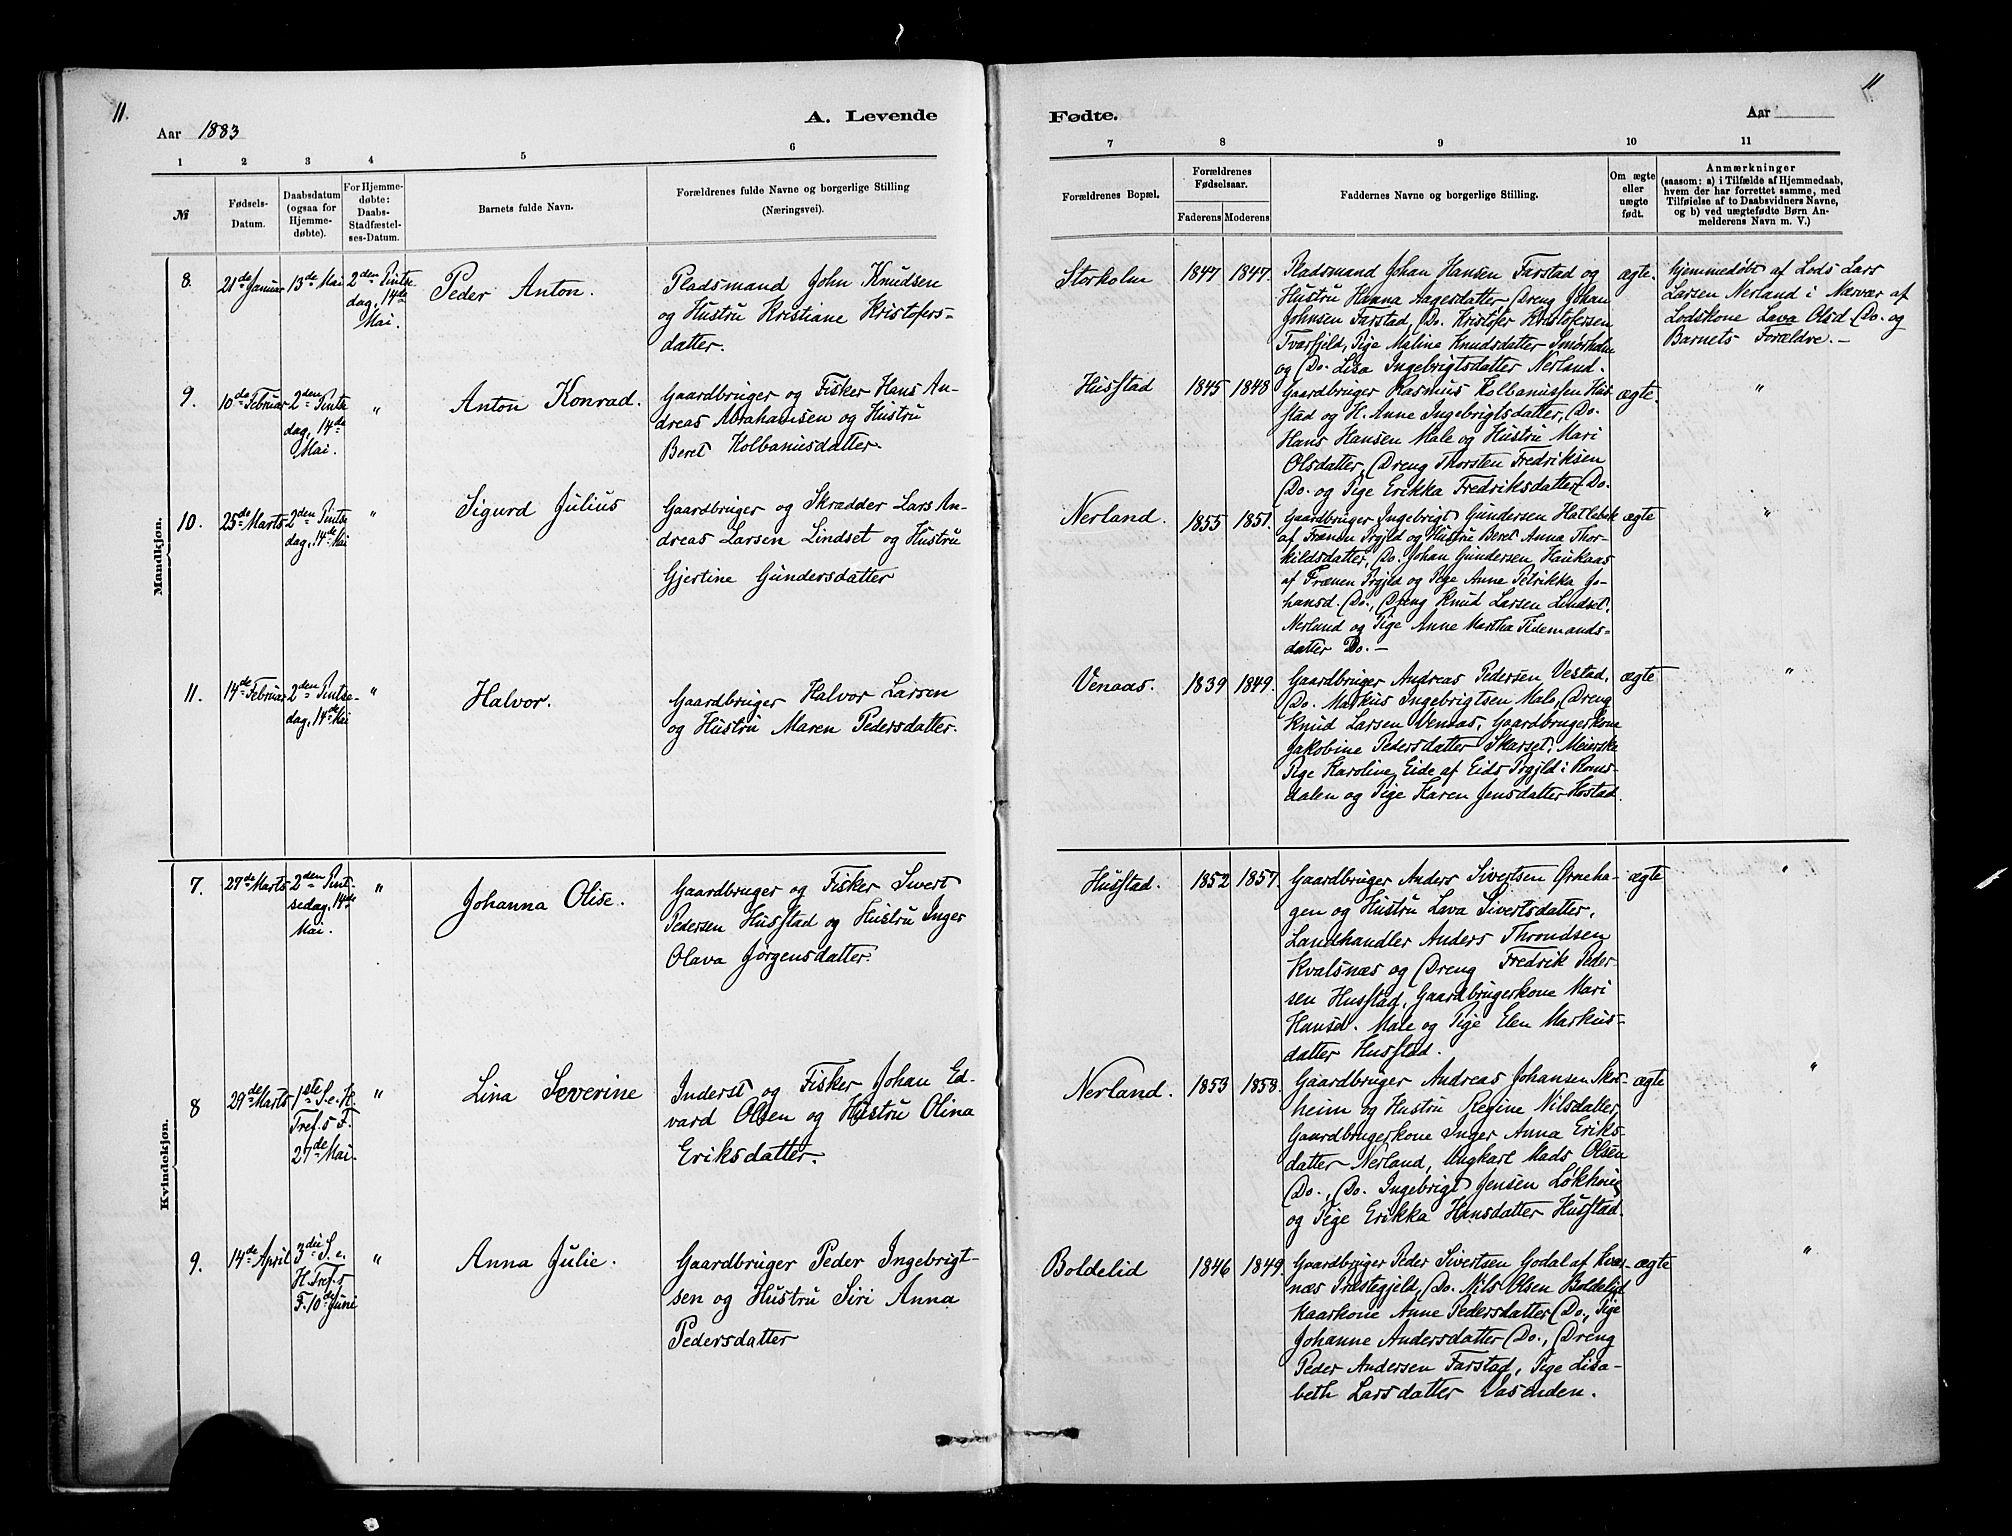 11.
Aar 1883
A. Levende
1 2 3 4 5 6
№
Fødsels-
Datum.
Daabsdatum
(ogsaa for
Hjemme-
døbte).
For Hjemme-
døbte:
Daabs-
Stadfæstel-
ses-Datum.
Barnets fulde Navn.
Forældrenes fulde Navne og borgerlige Stilling
(Næringsvei).
Mandkjøn.
8.
21de Januar
13de Mai
2den Pintse
dag, 14de
Mai.
Peder Anton.
Pladsmand John Knudsen
og Hustru Kristiane Kristofers-
datter.
9.
10de Februar
2den Pintse
dag, 14de
Mai.
"
Anton Konrad.
Gaardbruger og Fisker Hans An-
dreas Abrahamsen og Hustru
Beret Kolbaniusdatter.
10.
25de Marts
2den Pintse
dag, 14de Mai
"
Sigurd Julius
Gaardbruger og Skrædder Lars An-
dreas Larsen Lindset og Hustru
Gjertine Gundersdatter
11.
14de Februar
2den Pintse-
dag, 14de Mai
"
Halvor.
Gaardbruger Halvor Larsen
og Hustru Maren Pedersdatter.
Kvindekjøn.
7.
27de Marts
2den Pint-
sedag, 14de
Mai.
"
Johanna Olise.
Gaardbruger og Fisker Sivert
Pedersen Husstad og Hustru Inger
Olava Jørgensdatter.
8
29de Marts
1ste S. e. H.
Tref. s F.
27de Mai.
"
Lina Severine
Inderst og Fisker Johan Ed-
vard Olsen og Hustru Olina
Eriksdatter.
9.
14de April
3die S. e.
H. Tref. s
F. 10de Juni
"
Anna Julie.
Gaardbruger Peder Ingebrigt-
sen og Hustru Siri Anna
Pedersdatter
11
Fødte.
Aar
7 8 9 10 11
Forældrenes Bopæl.
Forældrenes
Fødselsaar.
Faderens Moderens
Faddernes Navne og borgerlige Stilling.
Om ægte
eller
uægte
født.
Anmærkninger
(saasom: a) i Tilfælde af Hjemmedaab,
hvem der har forrettet samme, med
Tilføielse af to Daabsvidners Navne,
og b) ved uægtefødte Børn An-
melderens Navn m. V.)
Storholm
1847 1847.
Pladsmand Johan Hansen Farstad og
Hustru Hanna Aagesdatter, Dreng Johan
Johnsen Farstad, Do. Kristofer Kristofersen
Tverfjeld, Pige Maline Knudsdatter Smørholm
og Do. Lisa Ingebrigtsdatter Nerland.
ægte.
Hjemmedøbt af Lods Lars
Larsen Nerland i Nærvær af
Lodskone Lava Olsd. Do. og
Barnets Forældre. —
Husstad
1845 1848
Gaardbruger Rasmus Kolbaniussen Hus-
stad og H. Anne Ingebrigtsdatter, Do.
Hans Hansen Male og Hustru Mari
Olsdatter, Dreng Thorsten Fredriksen
Do. og Pige Erikka Fredriksdatter Do.
ægte.
"
Nerland.
1855 1851.
Gaardbruger Ingebrigt Gundersen Hatlebak
af Frænen Prgjld og Hustru Beret Anna Thor-
kildsdatter, Do. Johan Gundersen Haukaas
af Frænen Prgjld og Pige Anne Petrikka Jo-
hansd. Do., Dreng Knud Larsen Lindset,
Nerland og Pige Anne Martha Tidemands-
datter Do. —
ægte
"
Venaas.
1839 1849.
Gaardbruger Andreas Pedersen Vestad,
Do. Markus Ingebrigtsen Male, Dreng
Knud Larsen Venaas, Gaardbrugerkone
Jakobine Pedersdatter Skarset, Meierske
Pige Karoline Eide af Eids Prgjld i Roms-
dalen og Pige Karen Jensdatter Hostad.
ægte
"
Husstad.
1852 1857.
Gaardbruger Anders Sivertsen Ørneha-
gen og Hustru Lava Sivertsdatter,
Landhandler Anders Throndsen
Kvalsnæs og Dreng Fredrik Peder-
sen Husstad, Gaardbrugerkone Mari
Hansd. Male og Pige Elen Markus-
datter Husstad.
ægte
"
Nerland.
1853 1858.
Gaardbruger Andreas Johansen Skot-
heim og Hustru Regine Nilsdatter,
Gaardbrugerkone Inger Anna Eriks-
datter Nerland, Ungkarl Mads Olsen
Do., Do. Ingebrigt Jensen Løkhoug
og Pige Erikka Hansdatter Husstad.
ægte
"
Boldelid
1846 1849.
Gaardbruger Peder Sivertsen Godal af Kvær-
næs Præstegjeld, Do. Nils Olsen Boldelid
Kaarkone Anne Pedersdatter Do., Pige
Johanne Andersdatter Do., Dreng
Peder Andersen Farstad, Pige Lisa-
beth Larsdatter Vasenden.
ægte
"